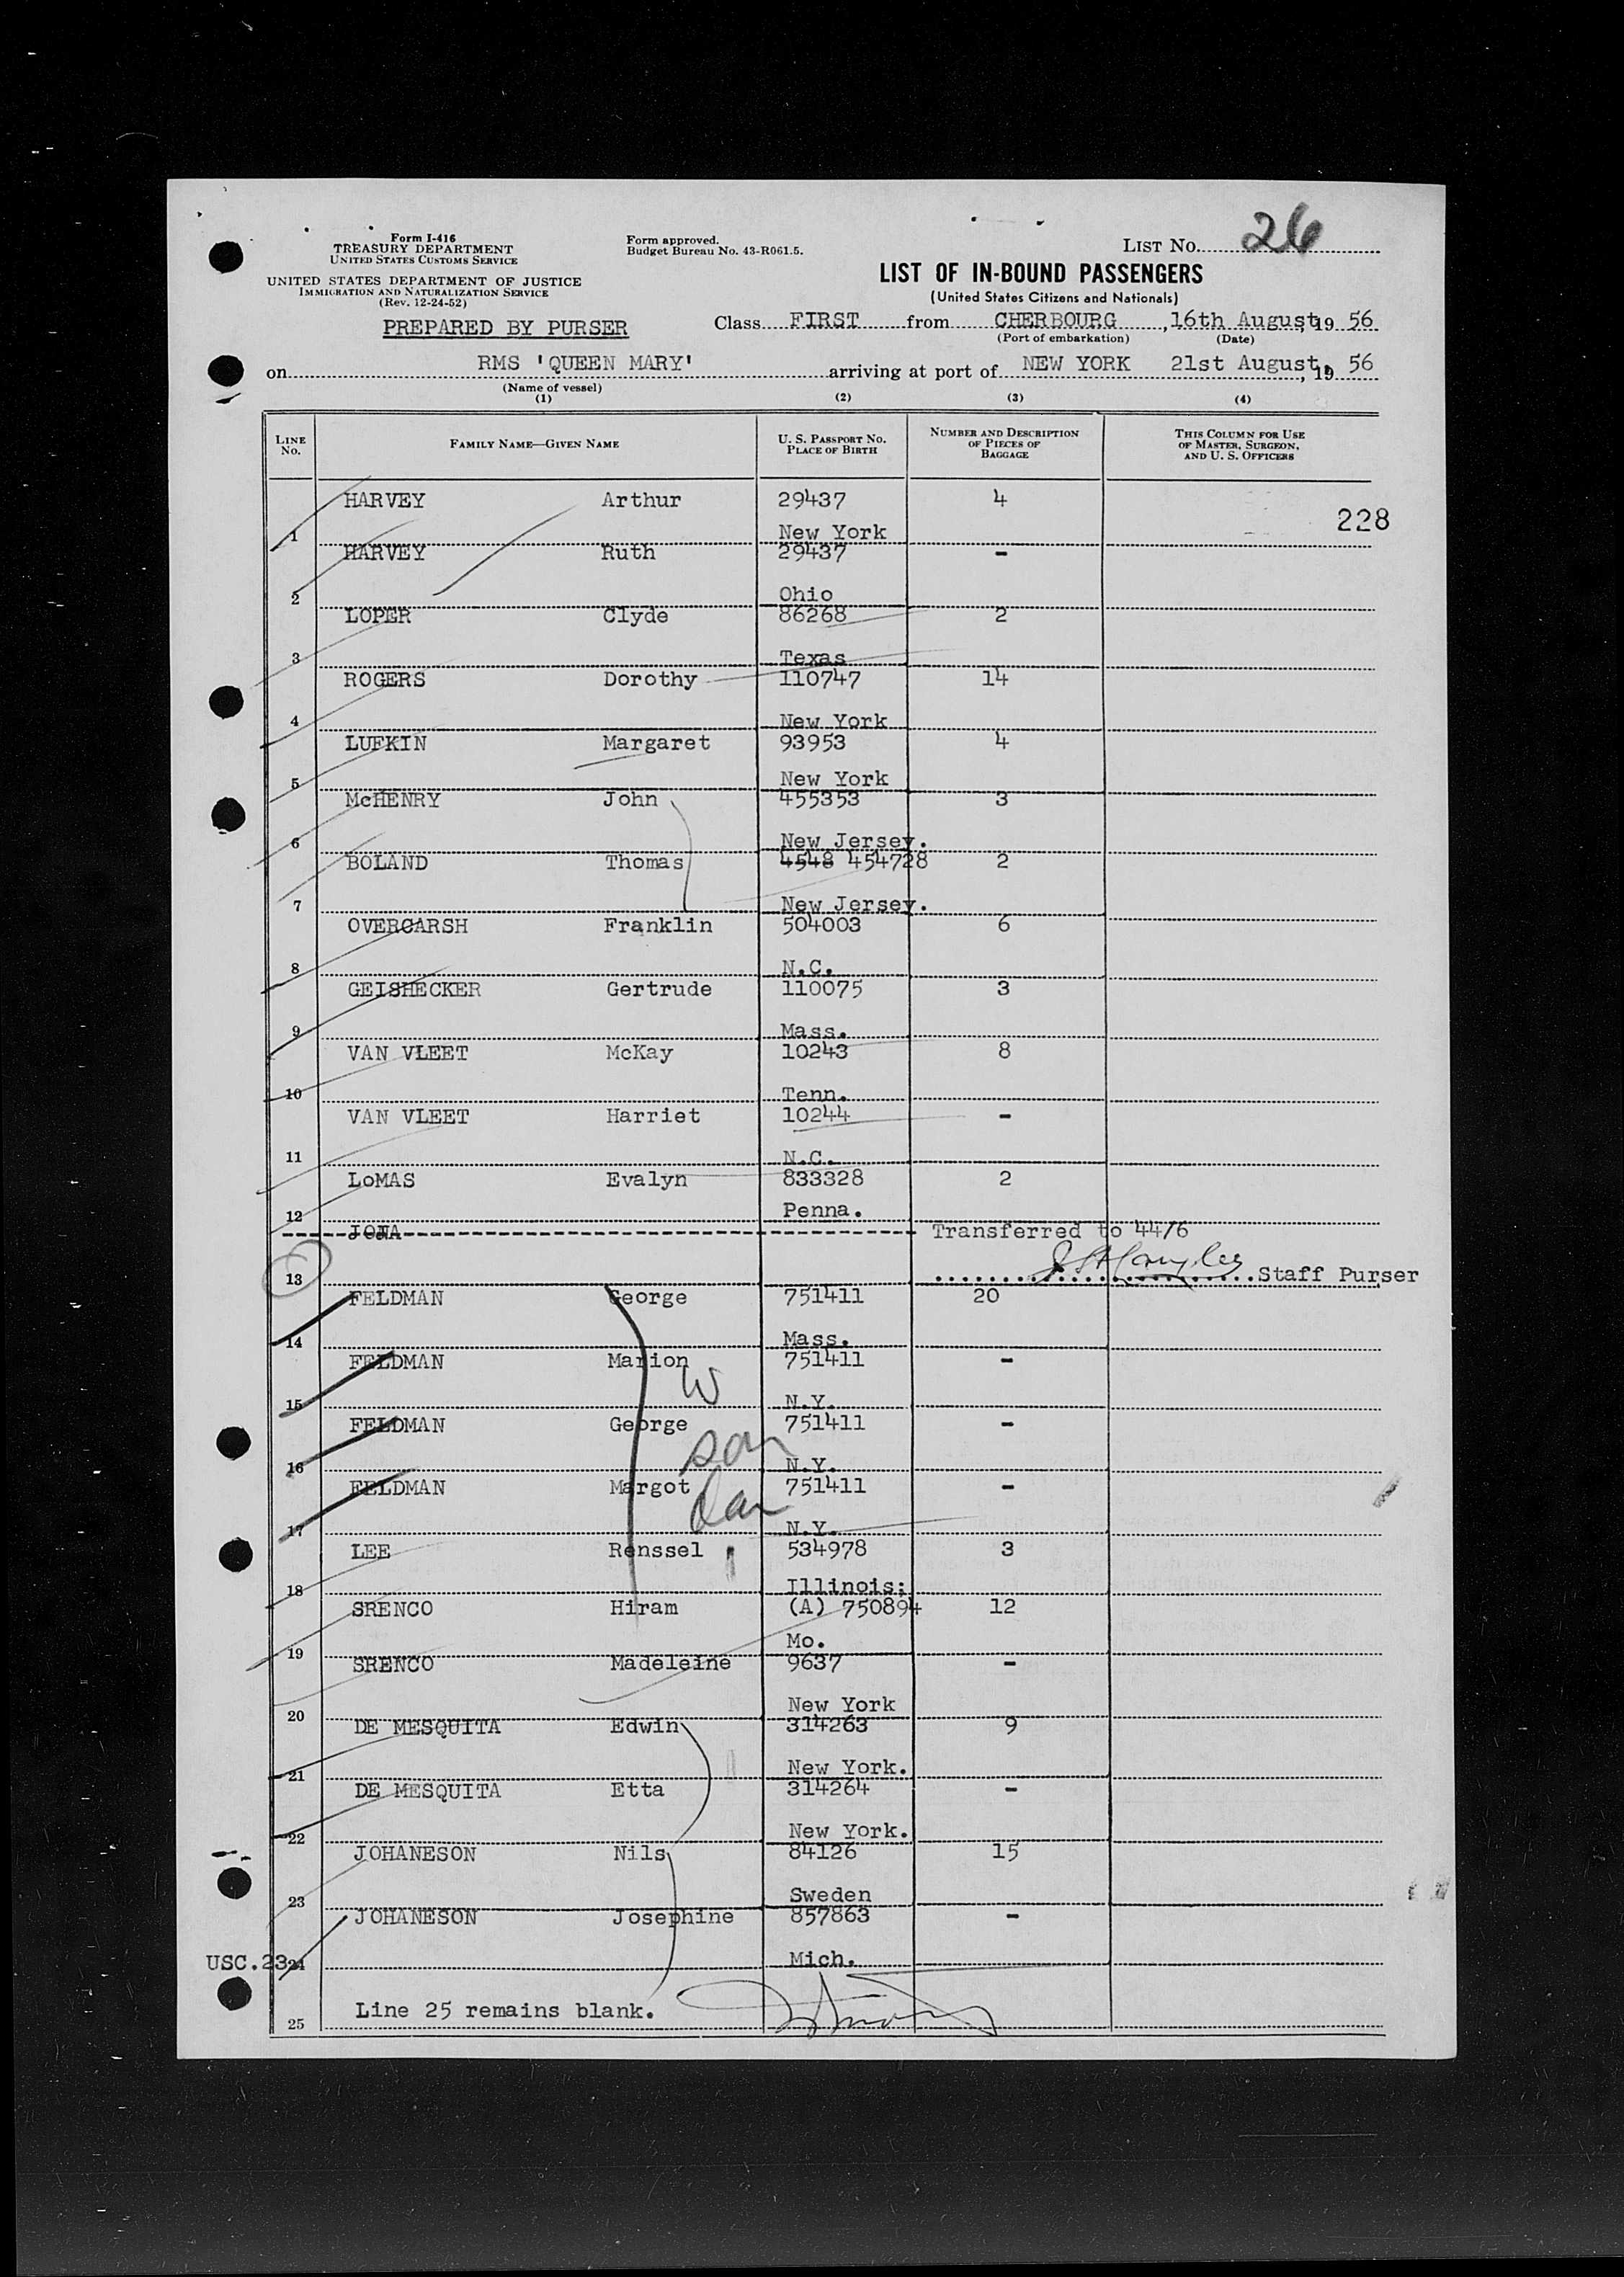 Form I-416
TREASURY DEPARTMENT
UNITED STATES CUSTOMS SERVICE
UNITED STATES DEPARTMENT OF JUSTICE
IMMIGRATION AND NATURALIZATION SERVICE
(Rev. 12-24-52)
PREPARED BY PURSER
Form approved.
Budget Bureau No. 43-R061.5.
LIST NO. 26
LIST OF IN-BOUND PASSENGERS
(United States Citizens and Nationals)
Class FIRST from CHERBOURG, 16th August, 19 56
(Port of embarkation) (Date)
on RMS 'QUEEN MARY' arriving at port of NEW YORK 21st August, 19 56
(Name of vessel)
(1) (2) (3) (4)
LINE NO. FAMILY NAME—GIVEN NAME U. S. PASSPORT NO. PLACE OF BIRTH NUMBER AND DESCRIPTION OF PIECES OF BAGGAGE THIS COLUMN FOR USE OF MASTER, SURGEON, AND U. S. OFFICERS
HARVEY Arthur 29437 4
228
1 New York
HARVEY Ruth 29437 -
2 Ohio
LOPER Clyde 86268 2
3 Texas
ROGERS Dorothy 110747 14
4 New York
LUFKIN Margaret 93953 4
5 New York
McHENRY John 455353 3
6 New Jersey.
BOLAND Thomas 4548 454728 2
7 New Jersey.
OVERCARSH Franklin 504003 6
8 N.C.
GEISHECKER Gertrude 110075 3
9 Mass.
VAN VLEET McKay 10243 8
10 Tenn.
VAN VLEET Harriet 10244 -
11 N.C.
LoMAS Evalyn 833328 2
12 Penna.
JONA Transferred to 44/6
13 Staff Purser
FELDMAN George 751411 20
14 Mass.
FELDMAN Marion 751411 -
W
15 N.Y.
FELDMAN George 751411 -
son
16 N.Y.
FELDMAN Margot 751411 -
dau
17 N.Y.
LEE Renssel 534978 3
18 Illinois;
SRENCO Hiram (A) 750894 12
19 Mo.
SRENCO Madeleine 9637 -
20 New York
DE MESQUITA Edwin 314263 9
21 New York.
DE MESQUITA Etta 314264 -
22 New York.
JOHANESON Nils 84126 15
23 Sweden
JOHANESON Josephine 857863 -
USC.23 24 Mich.
25 Line 25 remains blank.